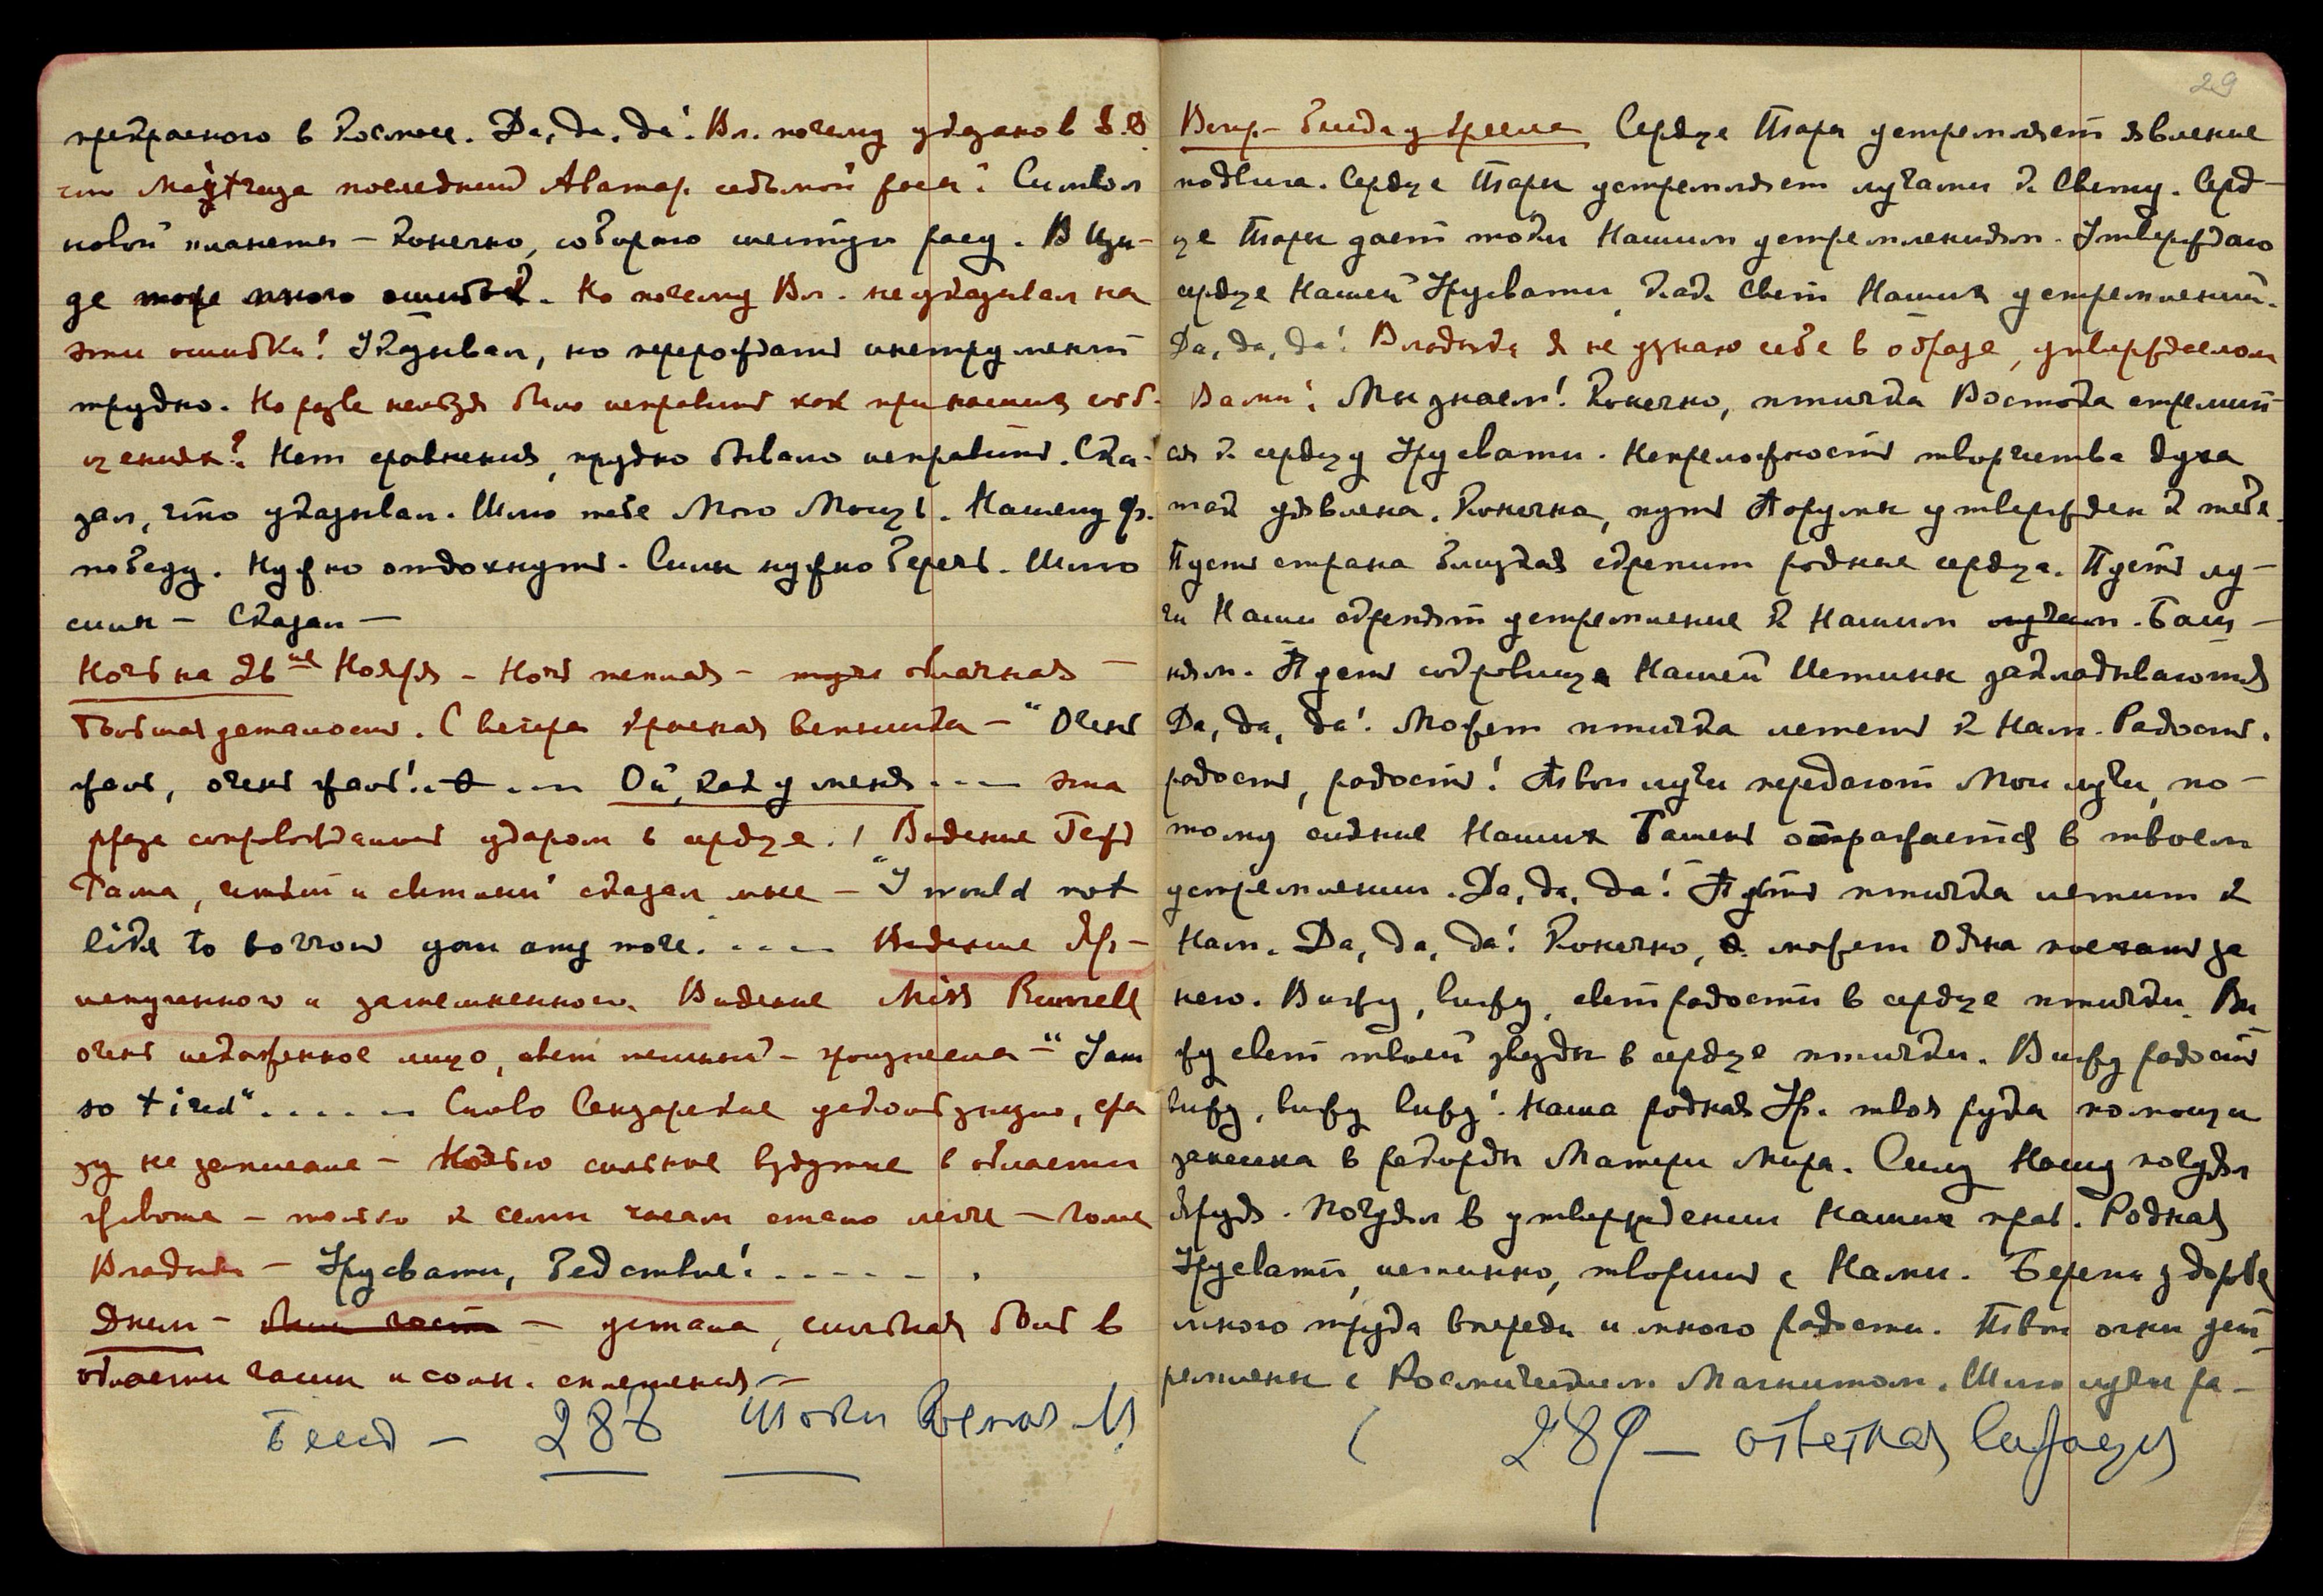 прекрасного в Космосе. Да, да, да! Вл. почему указано в
что Майтрейа последний Аватар седьмой расы? Символ
новой планеты – конечно, собираю шестую расу. В Изи-
де тоже много ошибок. Но почему Вл. не указывал на
эти ошибки? Указывал, но перерождать инструмент
трудно. Но разве нельзя было исправить как при наших сооб-
щениях? Нет сравнения, трудно бывало исправить. Ска-
зал, что указывал. Шлю тебе Мою Мощь. Нашему Ф.
победу. Нужно отдохнуть. Силы нужно беречь. Шлю
силы – Сказал –
Ночь на 26ое Ноября – Ночь теплая – облачная –
большая усталость. С вечера красная вспышка – "Очень
жаль, очень жаль! ... Ой, как у меня ... эта
фраза сопровождалась ударом в сердце. ! Видение
чистый и светлый сказал мне – "I would not
like to borrow you any more. .... Видение Яр.
испуганного и затемненного. Видение Miss
очень искаженное лицо, цвет темный – произнесла – "I am
so tired" ...... Слово Сензарское ускользнуло, сра
зу не записала – Ночью сильное вздутие в области
живота – только к семи часам стало легче – Голос
Владыки – Урусвати, бедствие! ......
Днем – – устала, сильная боль в
области чаши и солн. сплетения –
Бесед – 288 Токи М.
29
Вечер – беседа у Сердце Тары устремляет явление
подвига. Сердце Тары устремляет лучами к Свету. Серд-
це Тары дает токи Нашим устремлениям. Утверждаю
сердце Нашей Урусвати, как свет Наших устремлений.
Да, да, да! Владыка я не узнаю себя в образе, утверждаемом
Вами! Мы знаем! Конечно, птичка Востока стремит-
ся к сердцу Урусвати. Непреложность творчества духа
так явлена. Конечно, путь Порумы утвержден к тебе.
Пусть страна близкая скрепит родные сердца. Пусть лу-
чи Наши окрепят устремление к Нашим лучам. Баш-
ням. Пусть сокровища Нашей Истины закладываются
Да, да, да! Может птичка лететь к Нам. Радость,
радость, радость! Твои лучи передают Мои лучи, по-
тому сияние Наших Башен отражается в твоем
устремлении. Да, да, да! Пусть птичка летит к
Нам. Да, да, да! Конечно, может Ояна поехать за
него. Вижу, вижу, свет радости в сердце птички. Ви
жу свет твоей звезды в сердце птички. Вижу радость
вижу, вижу вижу! Наша родная Ур. твоя рука помощи
занесена в рекорды Матери Мира. Силу Нашу почуял
Яруя. Почуял в утверждении Наших прав. Родная
Урусвати, истинно, творишь с Нами. Береги здоровье
много труда впереди и много радости. Твои огни уст-
ремлены с Космическим Магнитом. Шлю лучи ра-
( 289 – ответная вибрация